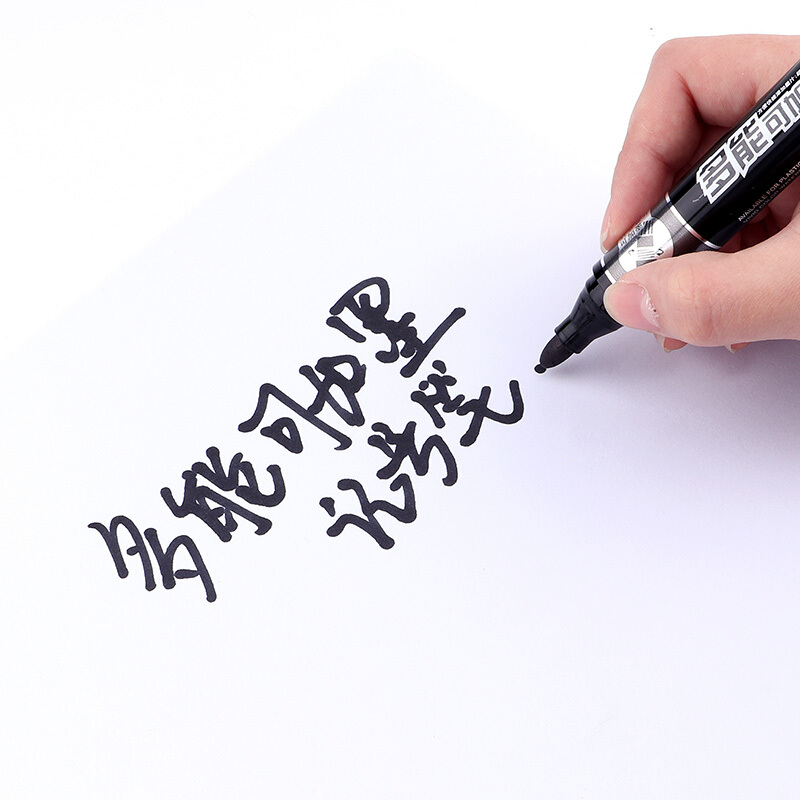 多能可加墨
记号笔
多能可加
AVAILABLE FOR PLASTIC